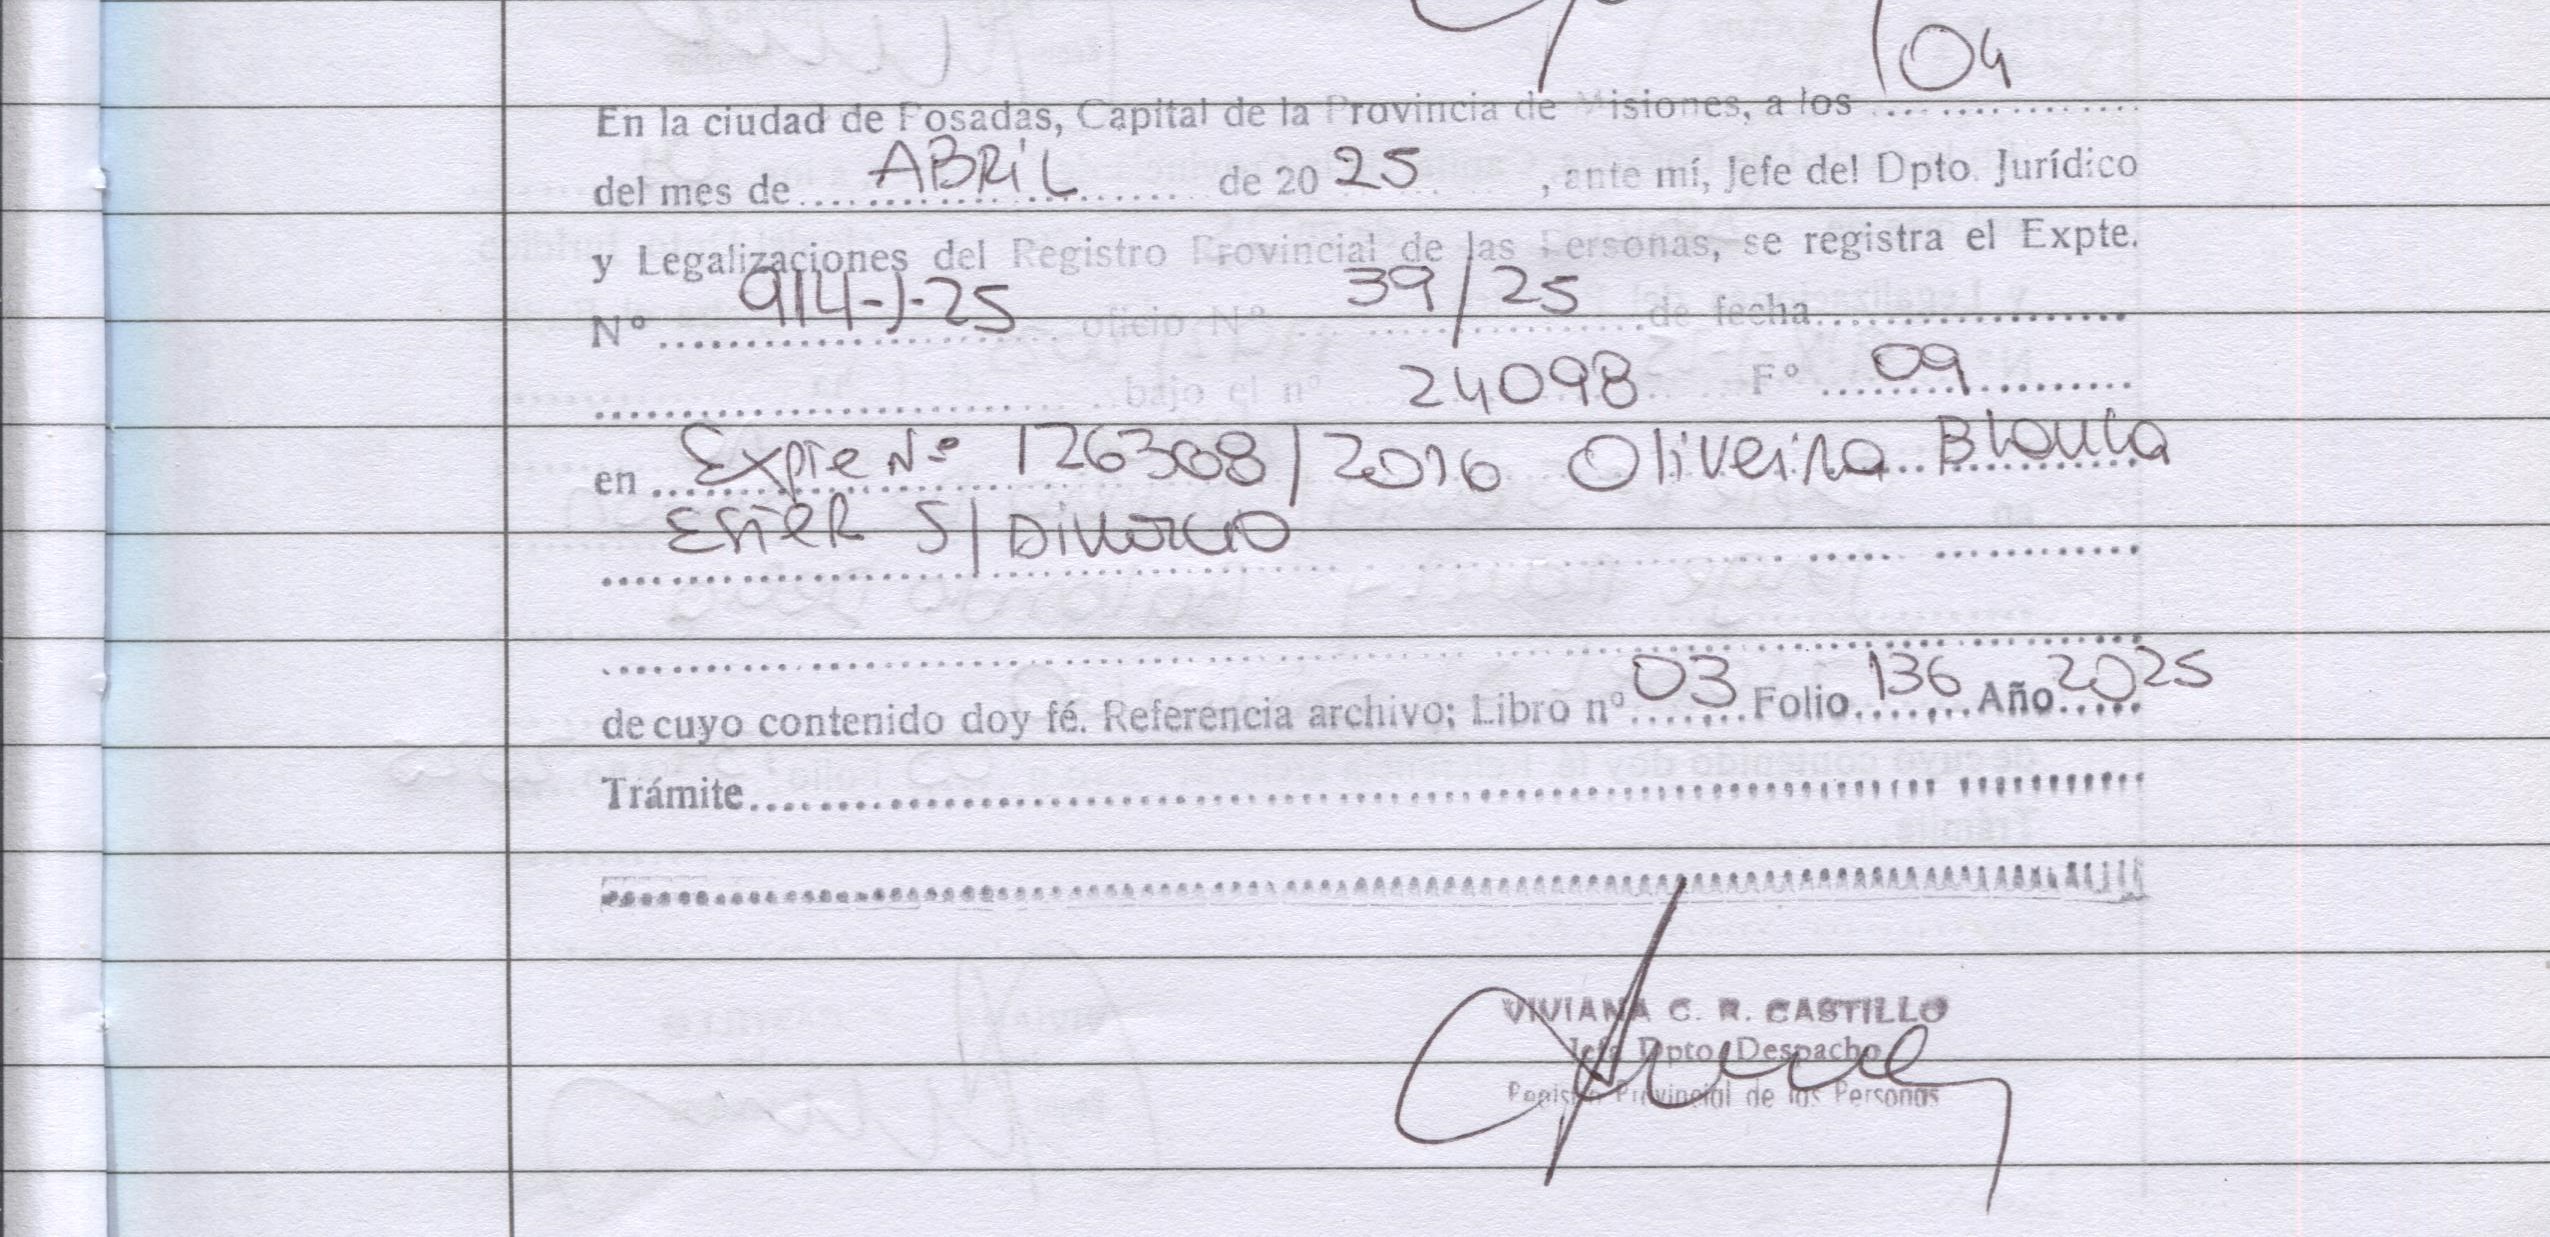 04
En la ciudad de Posadas, Capital de la Provincia de Misiones, a los ..............
del mes de .... ABRIL ........ de 20 25 , ante mí, Jefe del Dpto. Jurídico
y Legalizaciones del Registro Provincial de las Personas, se registra el Expte.
Nº 914-J-25 oficio Nº 39/25 de fecha..................
.............................. bajo el nº 24098 Fº 09
en Expte Nº 126308/2016 Oliveira Blanca
Ester S/ Divorcio
de cuyo contenido doy fé. Referencia archivo; Libro nº 03 Folio 136 Año 2025
Trámite..................
VIVIANA C. R. CASTILLO
Jefa Dpto. Despacho
Registro Provincial de las Personas